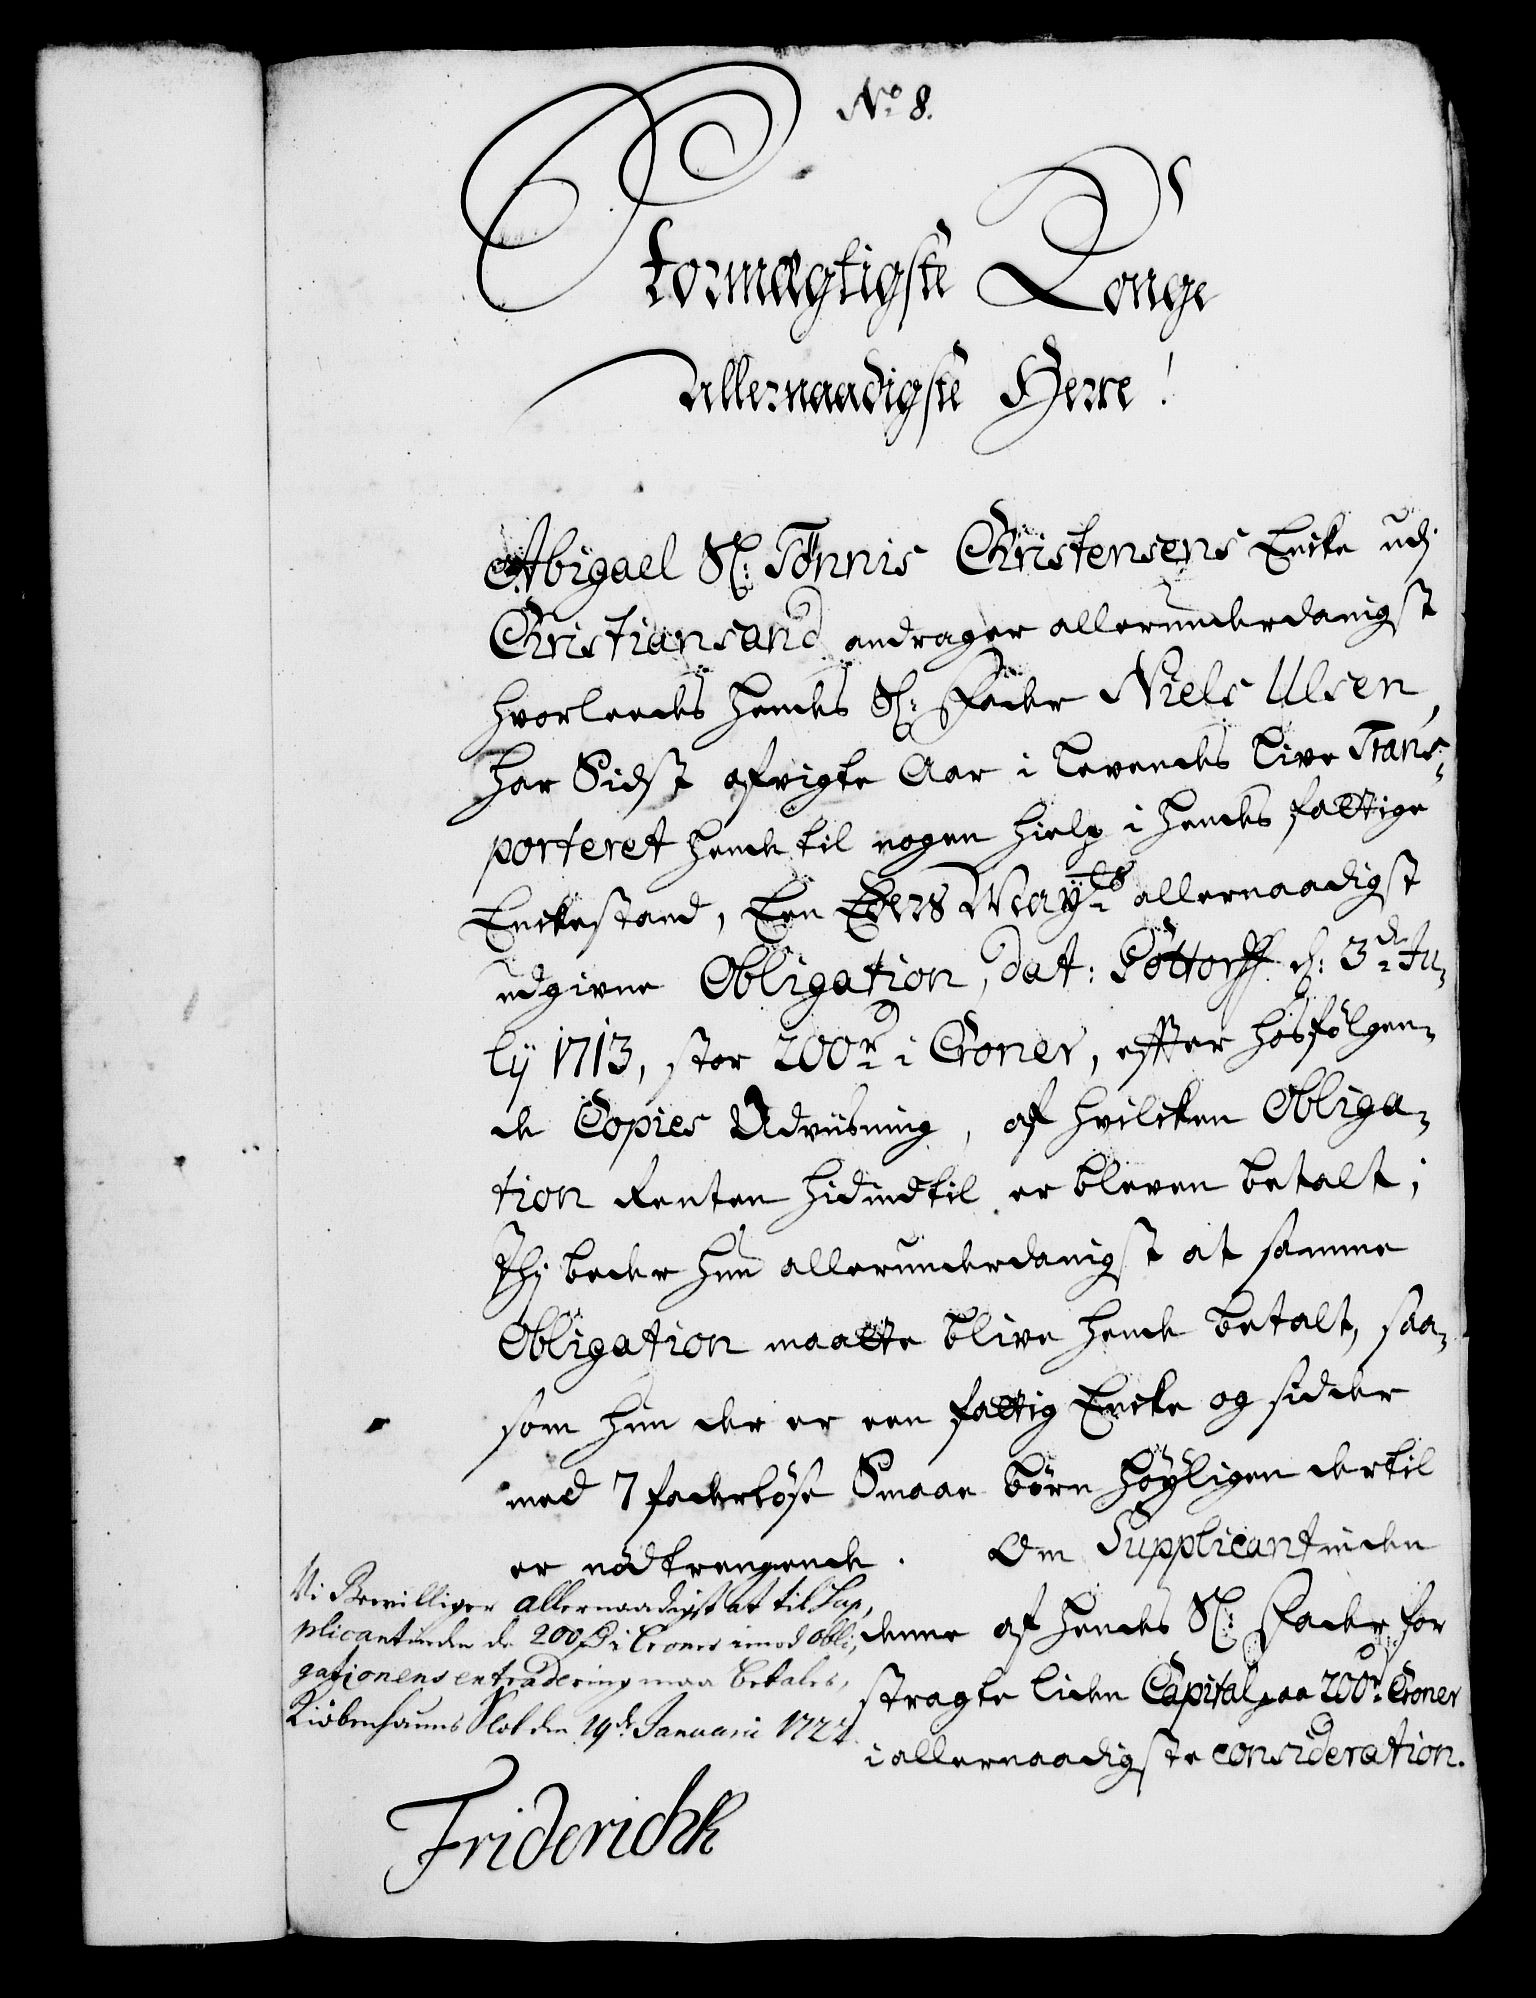 No 8.
Stormægtigste Konge
Allernaadigste Herre!
Abigael Sl: Tönnis Christensens Encke udj
Christiansand andrager allerunderdanigst
hvorleedes hendes Sl: Fader Niels Ulsen,
har Sidst afvigte Aar i levendes live Trans-
porteret hende til nogen hielp i hendes fattige
Enckestand, Een Eders Mayts allernaadigst
udgivne Obligation, dat: Gottorff d: 3de Ju-
ly 1713, stor 200rd i Croner, efter hosfölgen-
de Copies Udviisning, af hvilcken Obliga-
tion Renten hidindtil er bleven betalt;
Thj beder hun allerunderdanigst at samme
Obligation maatte blive hende betalt, saa-
som hun der er een fattig Encke og sidder
med 7 faderlöse Smaae börn höyligen dertil
er nödtrengende. Om Supplicantinden
denne af hendes Sl: Fader for
stragte liden Capital paa 200rd Croner
i allernaadigste consideration.
Vi Bevilliger allernaadigst at til Sup-
plicantinden de 200 rd i Croner imod Obli-
gationens extradering maa betales,
Kiöbenhauns Slot den 19de Januarii 1722
Friderich R